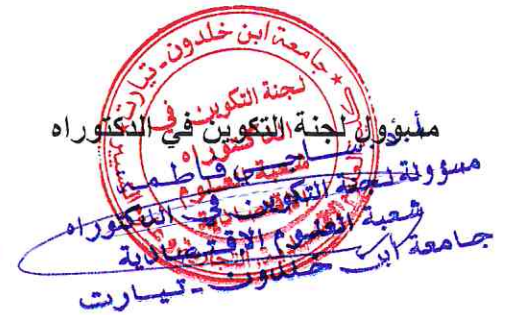 جامعة ابن خلدون - تيارت
لجنة التكوين في
الدكتوراه
شعبة العلوم
مسؤول لجنة التكوين في الدكتوراه
ساجي فاطمة
مسؤولة لجنة التكوين في الدكتوراه
شعبة العلوم الاقتصادية
جامعة ابن خلدون - تيارت